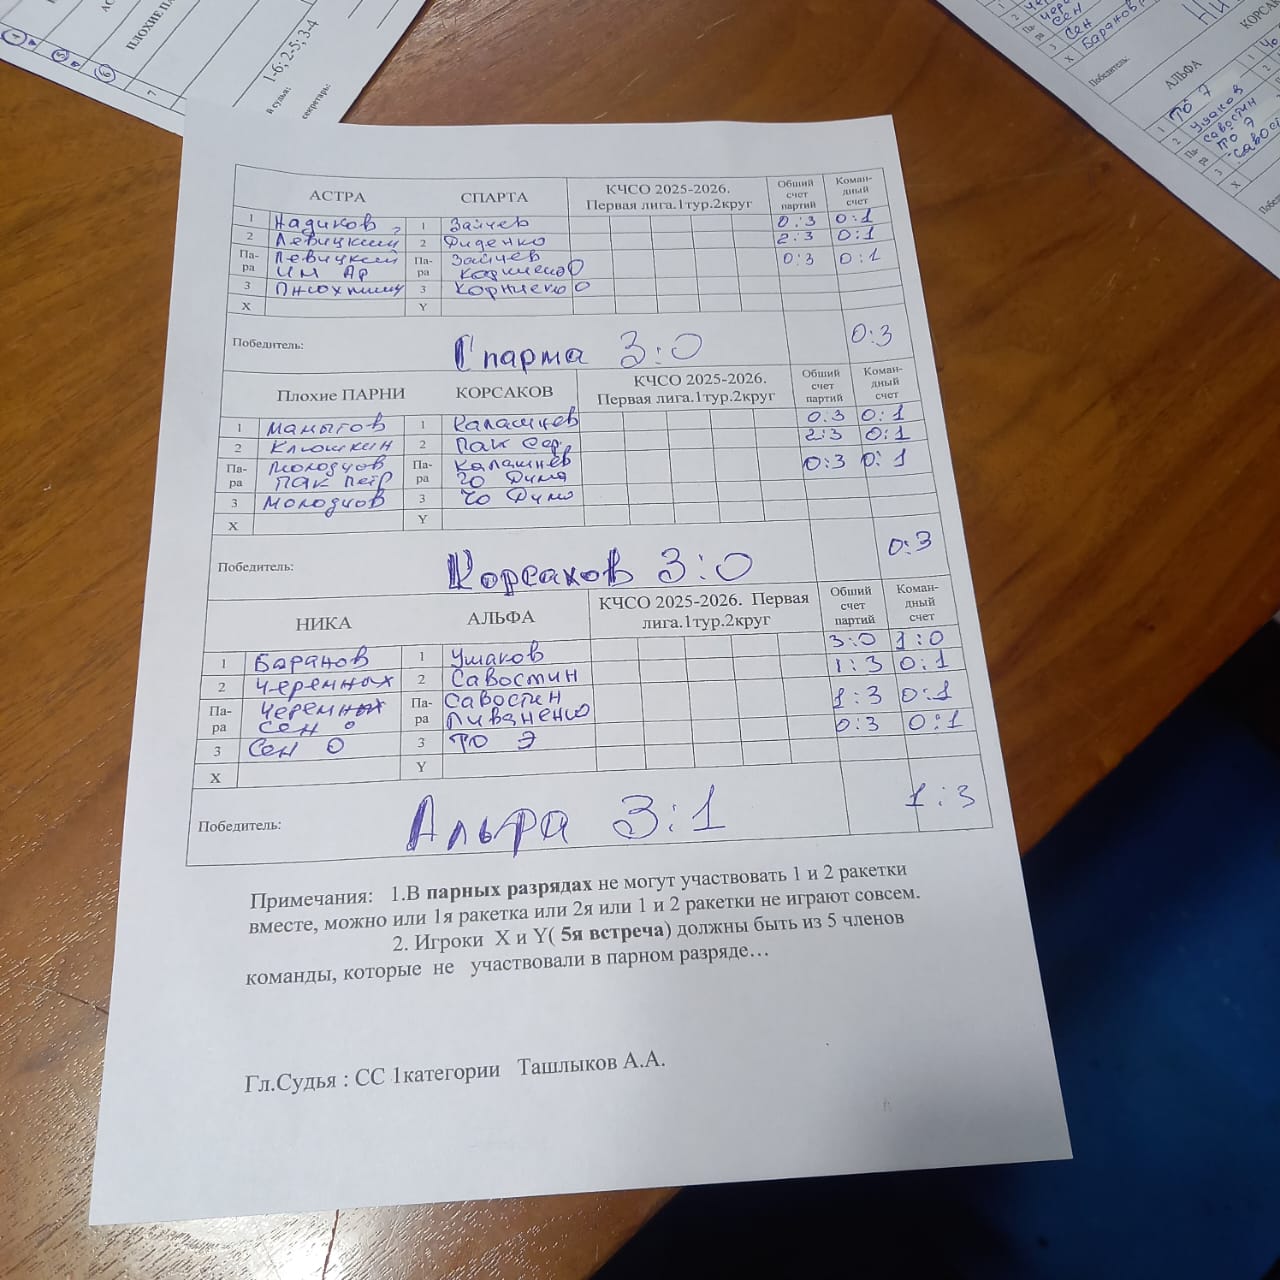 АСТРА СПАРТА КЧСО 2025-2026. Первая лига.1тур.2круг Общий счет партий Коман-дный счет
1 Надиков 1 Зайцев 0:3 0:1
2 Левицкий 2 Диденко 2:3 0:1
Па-ра Левицкий Па-ра Зайцев 0:3 0:1
Им Ар Корниенко
3 3 Корниенко
X Y
Победитель: Спарта 3:0 0:3
Плохие ПАРНИ КОРСАКОВ КЧСО 2025-2026. Первая лига.1тур.2круг Общий счет партий Коман-дный счет
1 Мамытов 1 Калашнев 0:3 0:1
2 Клюшкин 2 Пак Сер. 2:3 0:1
Па-ра Молодцов Па-ра Калашнёв 0:3 0:1
Пак Петр Чо Дима
3 Молодцов 3 Чо Дима
X Y
0:3
Победитель: Корсаков 3:0
НИКА АЛЬФА КЧСО 2025-2026. Первая лига.1тур.2круг Общий счет партий Коман-дный счет
1 Баранов 1 Ушаков 3:0 1:0
2 Черемных 2 Савостин 1:3 0:1
Па-ра Черемных Па-ра Савостин 1:3 0:1
Сен О Пиваненко
3 Сен О 3 ТО Э 0:3 0:1
X Y
Победитель: Альфа 3:1 1:3
Примечания: 1.В парных разрядах не могут участвовать 1 и 2 ракетки
вместе, можно или 1я ракетка или 2я или 1 и 2 ракетки не играют совсем.
2. Игроки X и Y( 5я встреча) должны быть из 5 членов
команды, которые не участвовали в парном разряде…
Гл.Судья : СС 1категории Ташлыков А.А.
1-6; 2-5; 3-4
секретарь:
Победитель:
АЛЬФА
1 ТО Э
2 Ушаков
Савостин
ТО Э